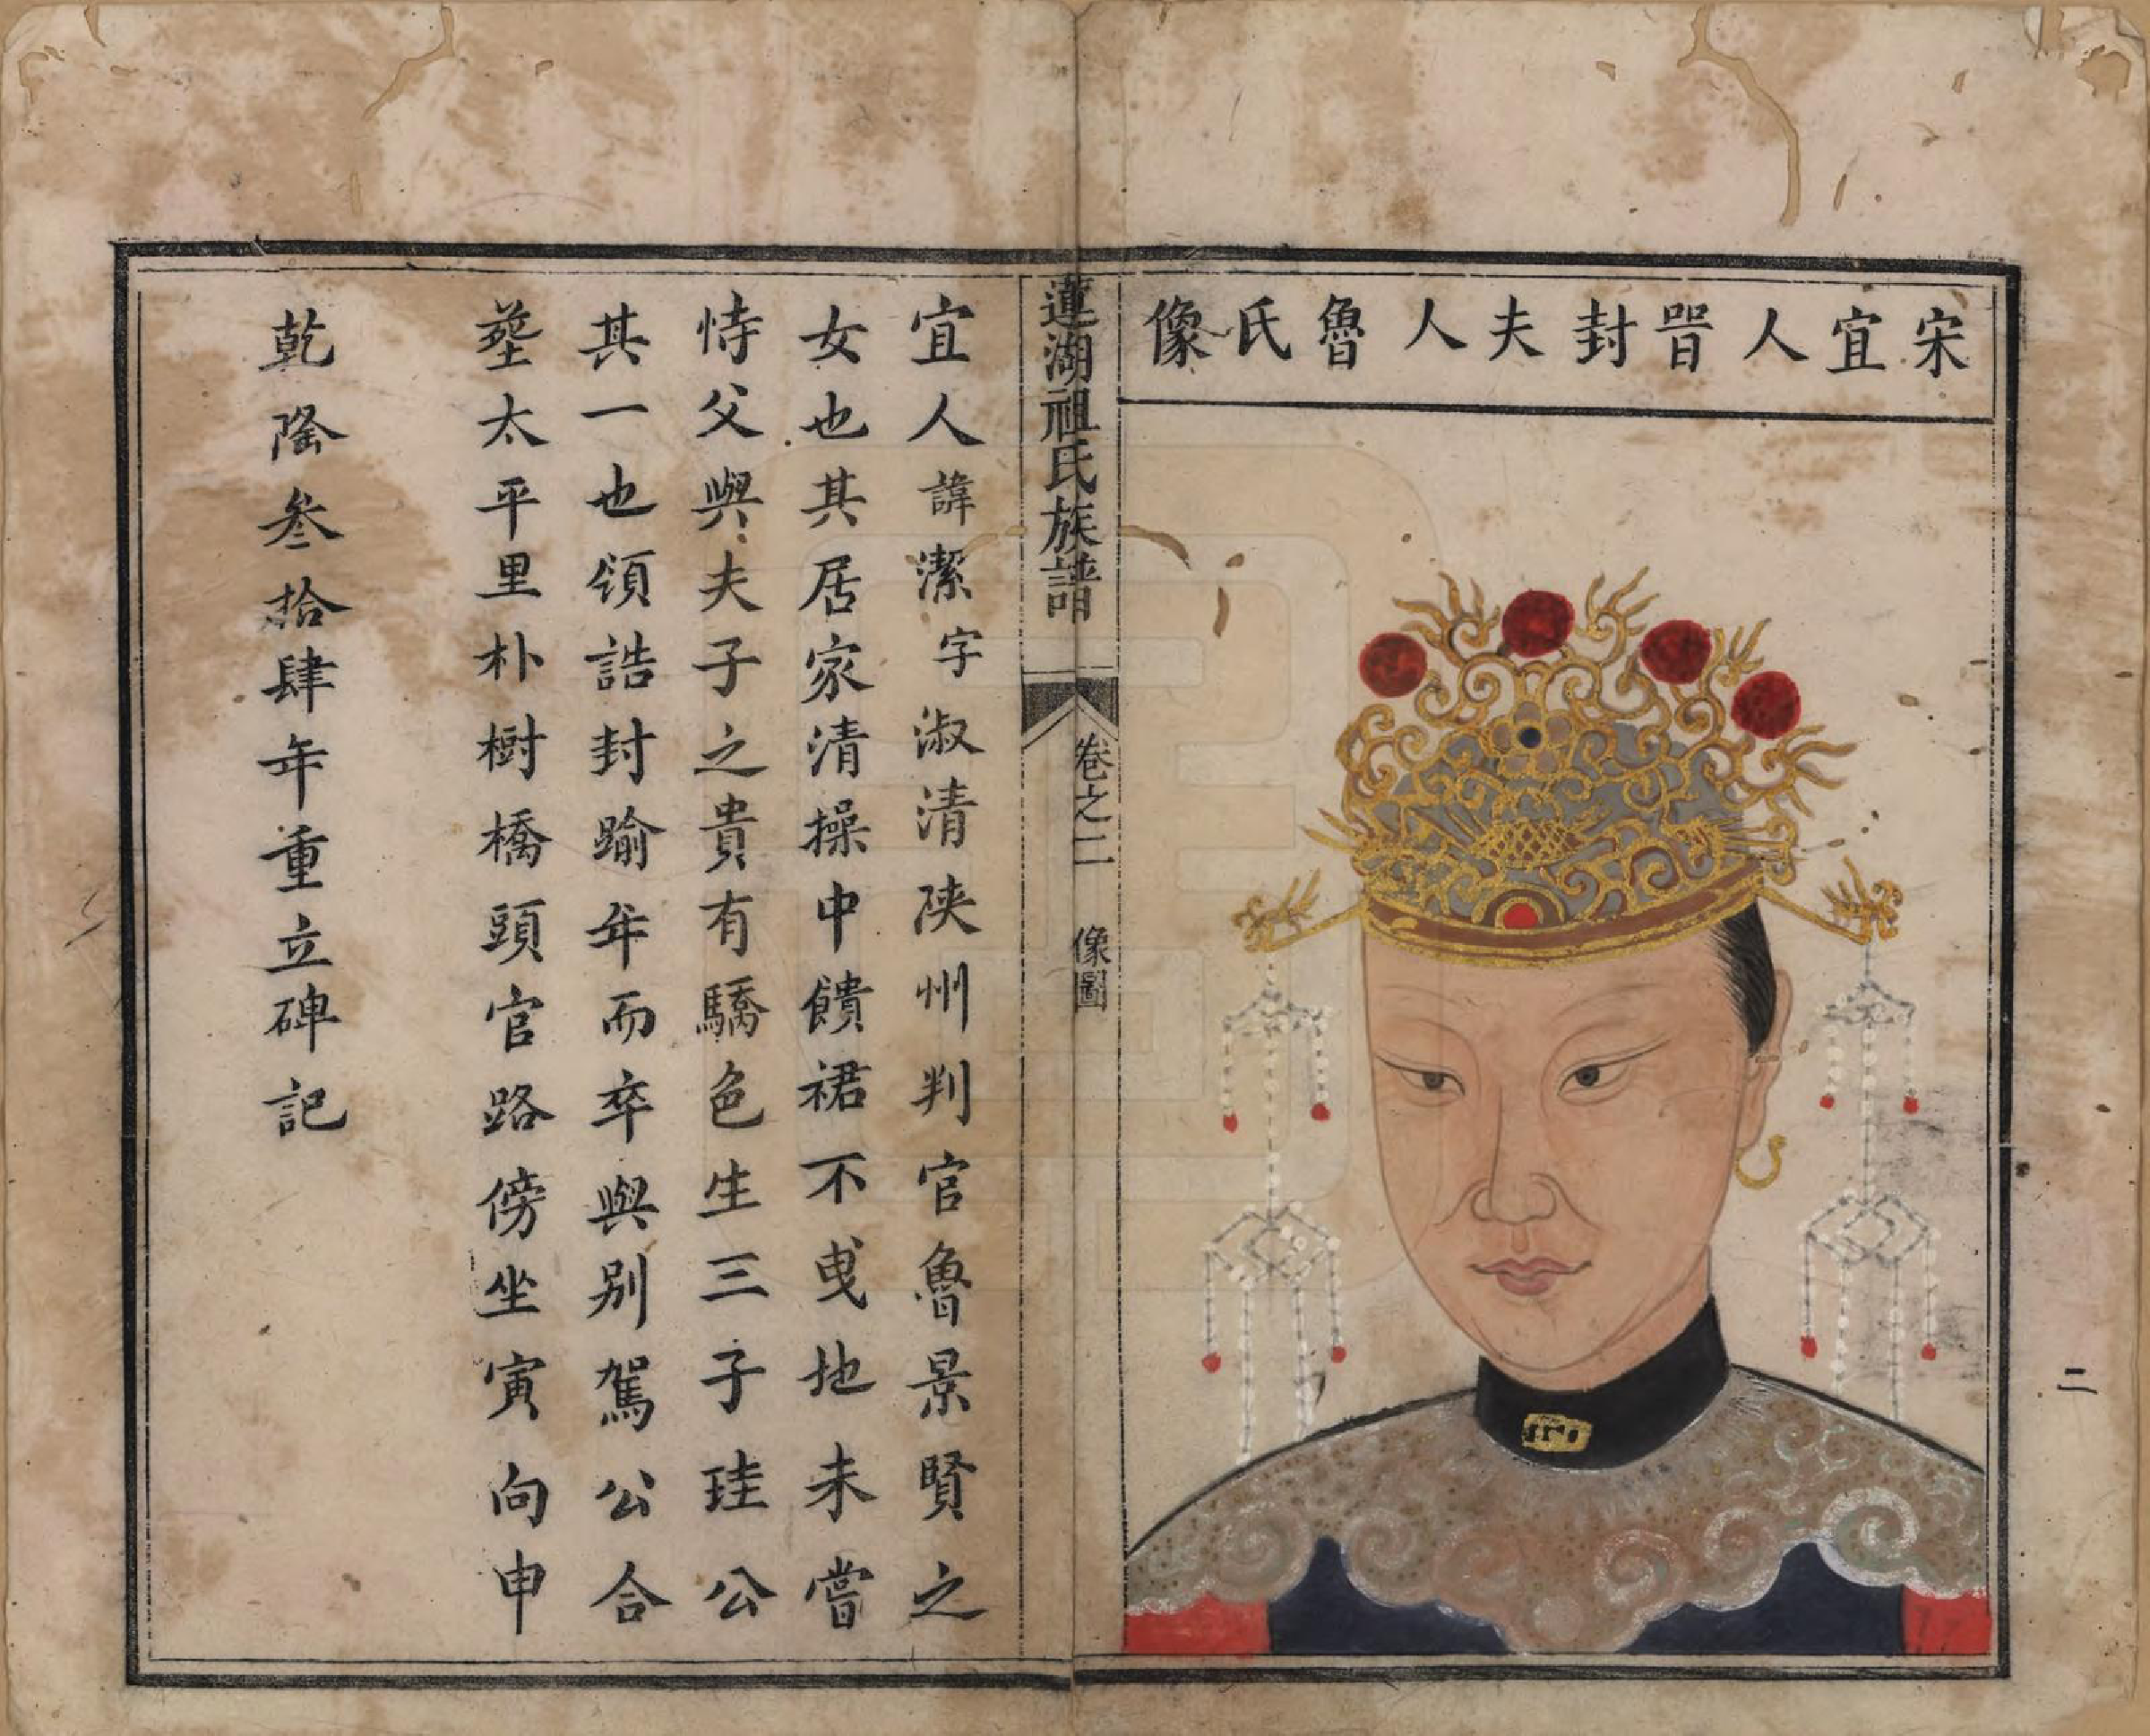 宋宜人晋封夫人魯氏像
二
蓮湖祖氏族譜
卷之二 像圖
宜人諱潔字淑清陕州判官魯景賢之
女也其居家清操中饋裙不曵地未嘗
恃父與夫子之貴有驕色生三子珪公
其一也領誥封踰年而卒與别駕公合
塟太平里朴樹橋頭官路傍坐寅向申
乾隆叁拾肆年重立碑記